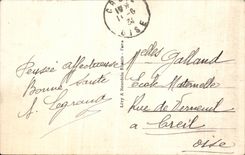 CREIL
OISE
Pensée affectueuse
Bonne Santé
A. Legrand
Lévy & Neurdein Réunis - Paris
Melles Galland
Ecole Maternelle
Rue de Verneuil
à Creil
Oise